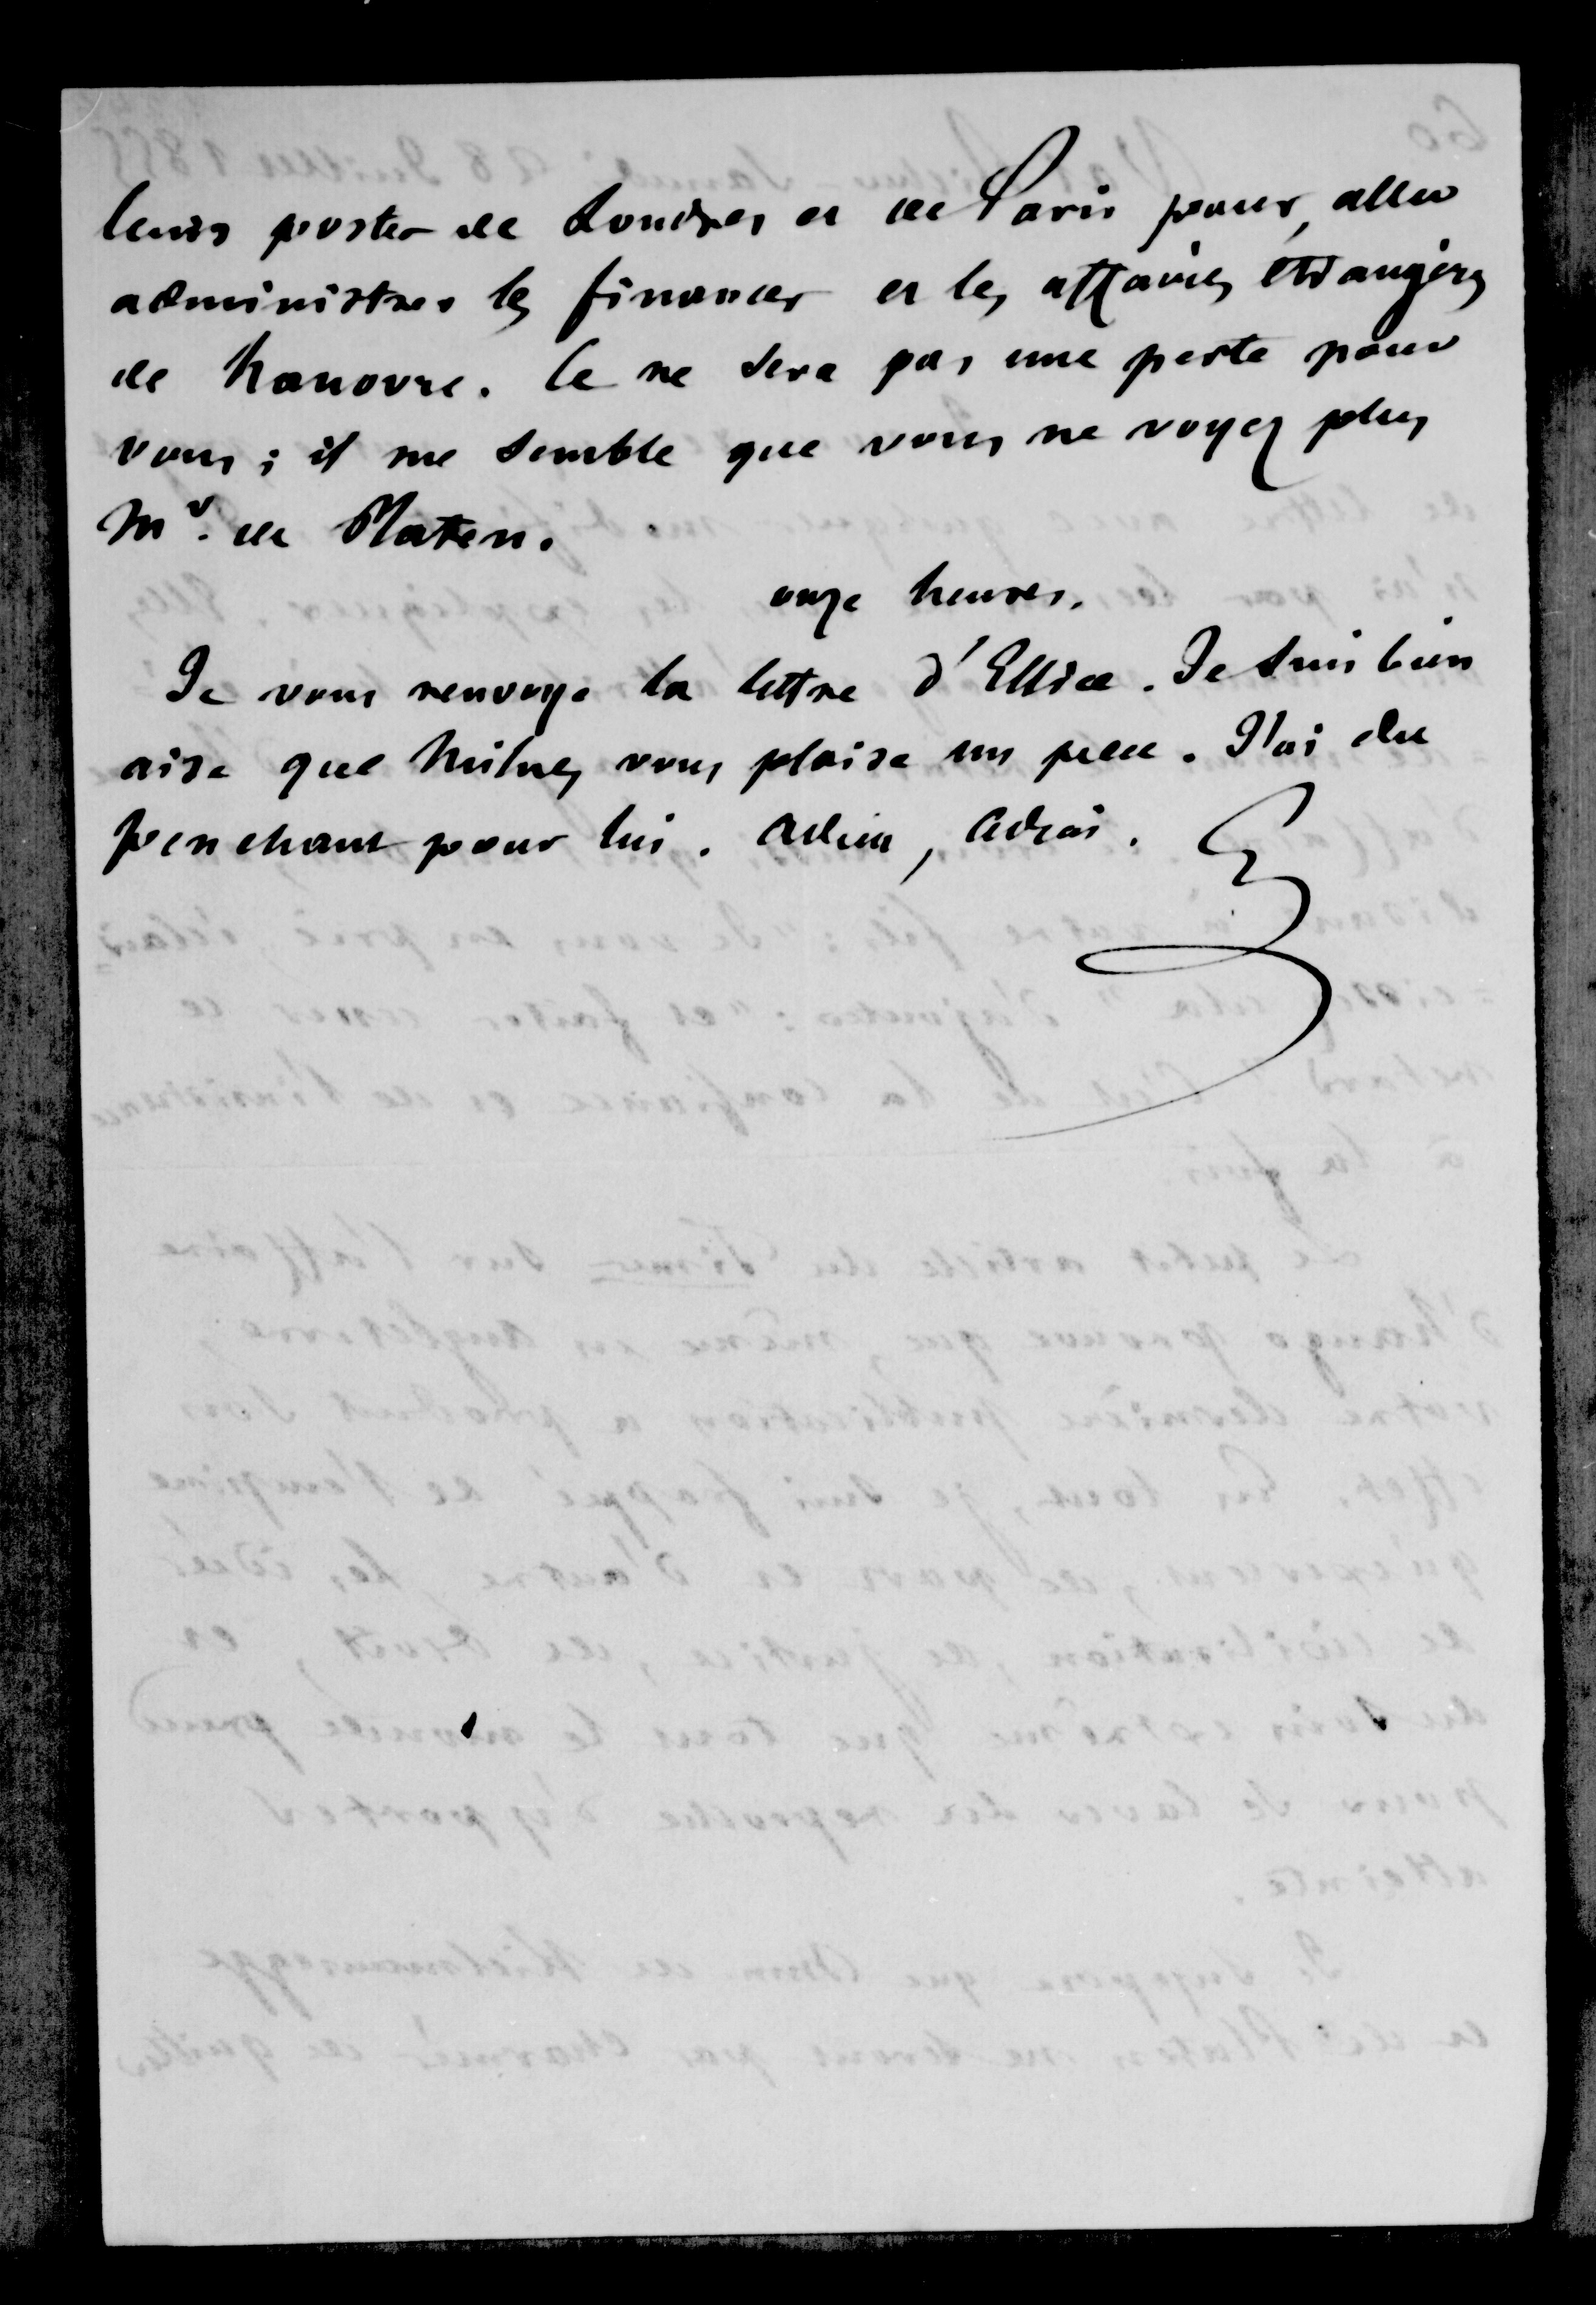 leurs postes de Londres et de Paris pour aller
administrer les finances et les affaires étrangères
de hanovre. Ce ne sera pas une perte pour
vous ; il me semble que vous ne voyez plus
Mr. de Platen.
onze heures.
Je vous renvoye la lettre d'Ellice. Je suis bien
aise que Milnes vous plaise un peu. J'ai du
penchant pour lui. Adieu, Adieu.